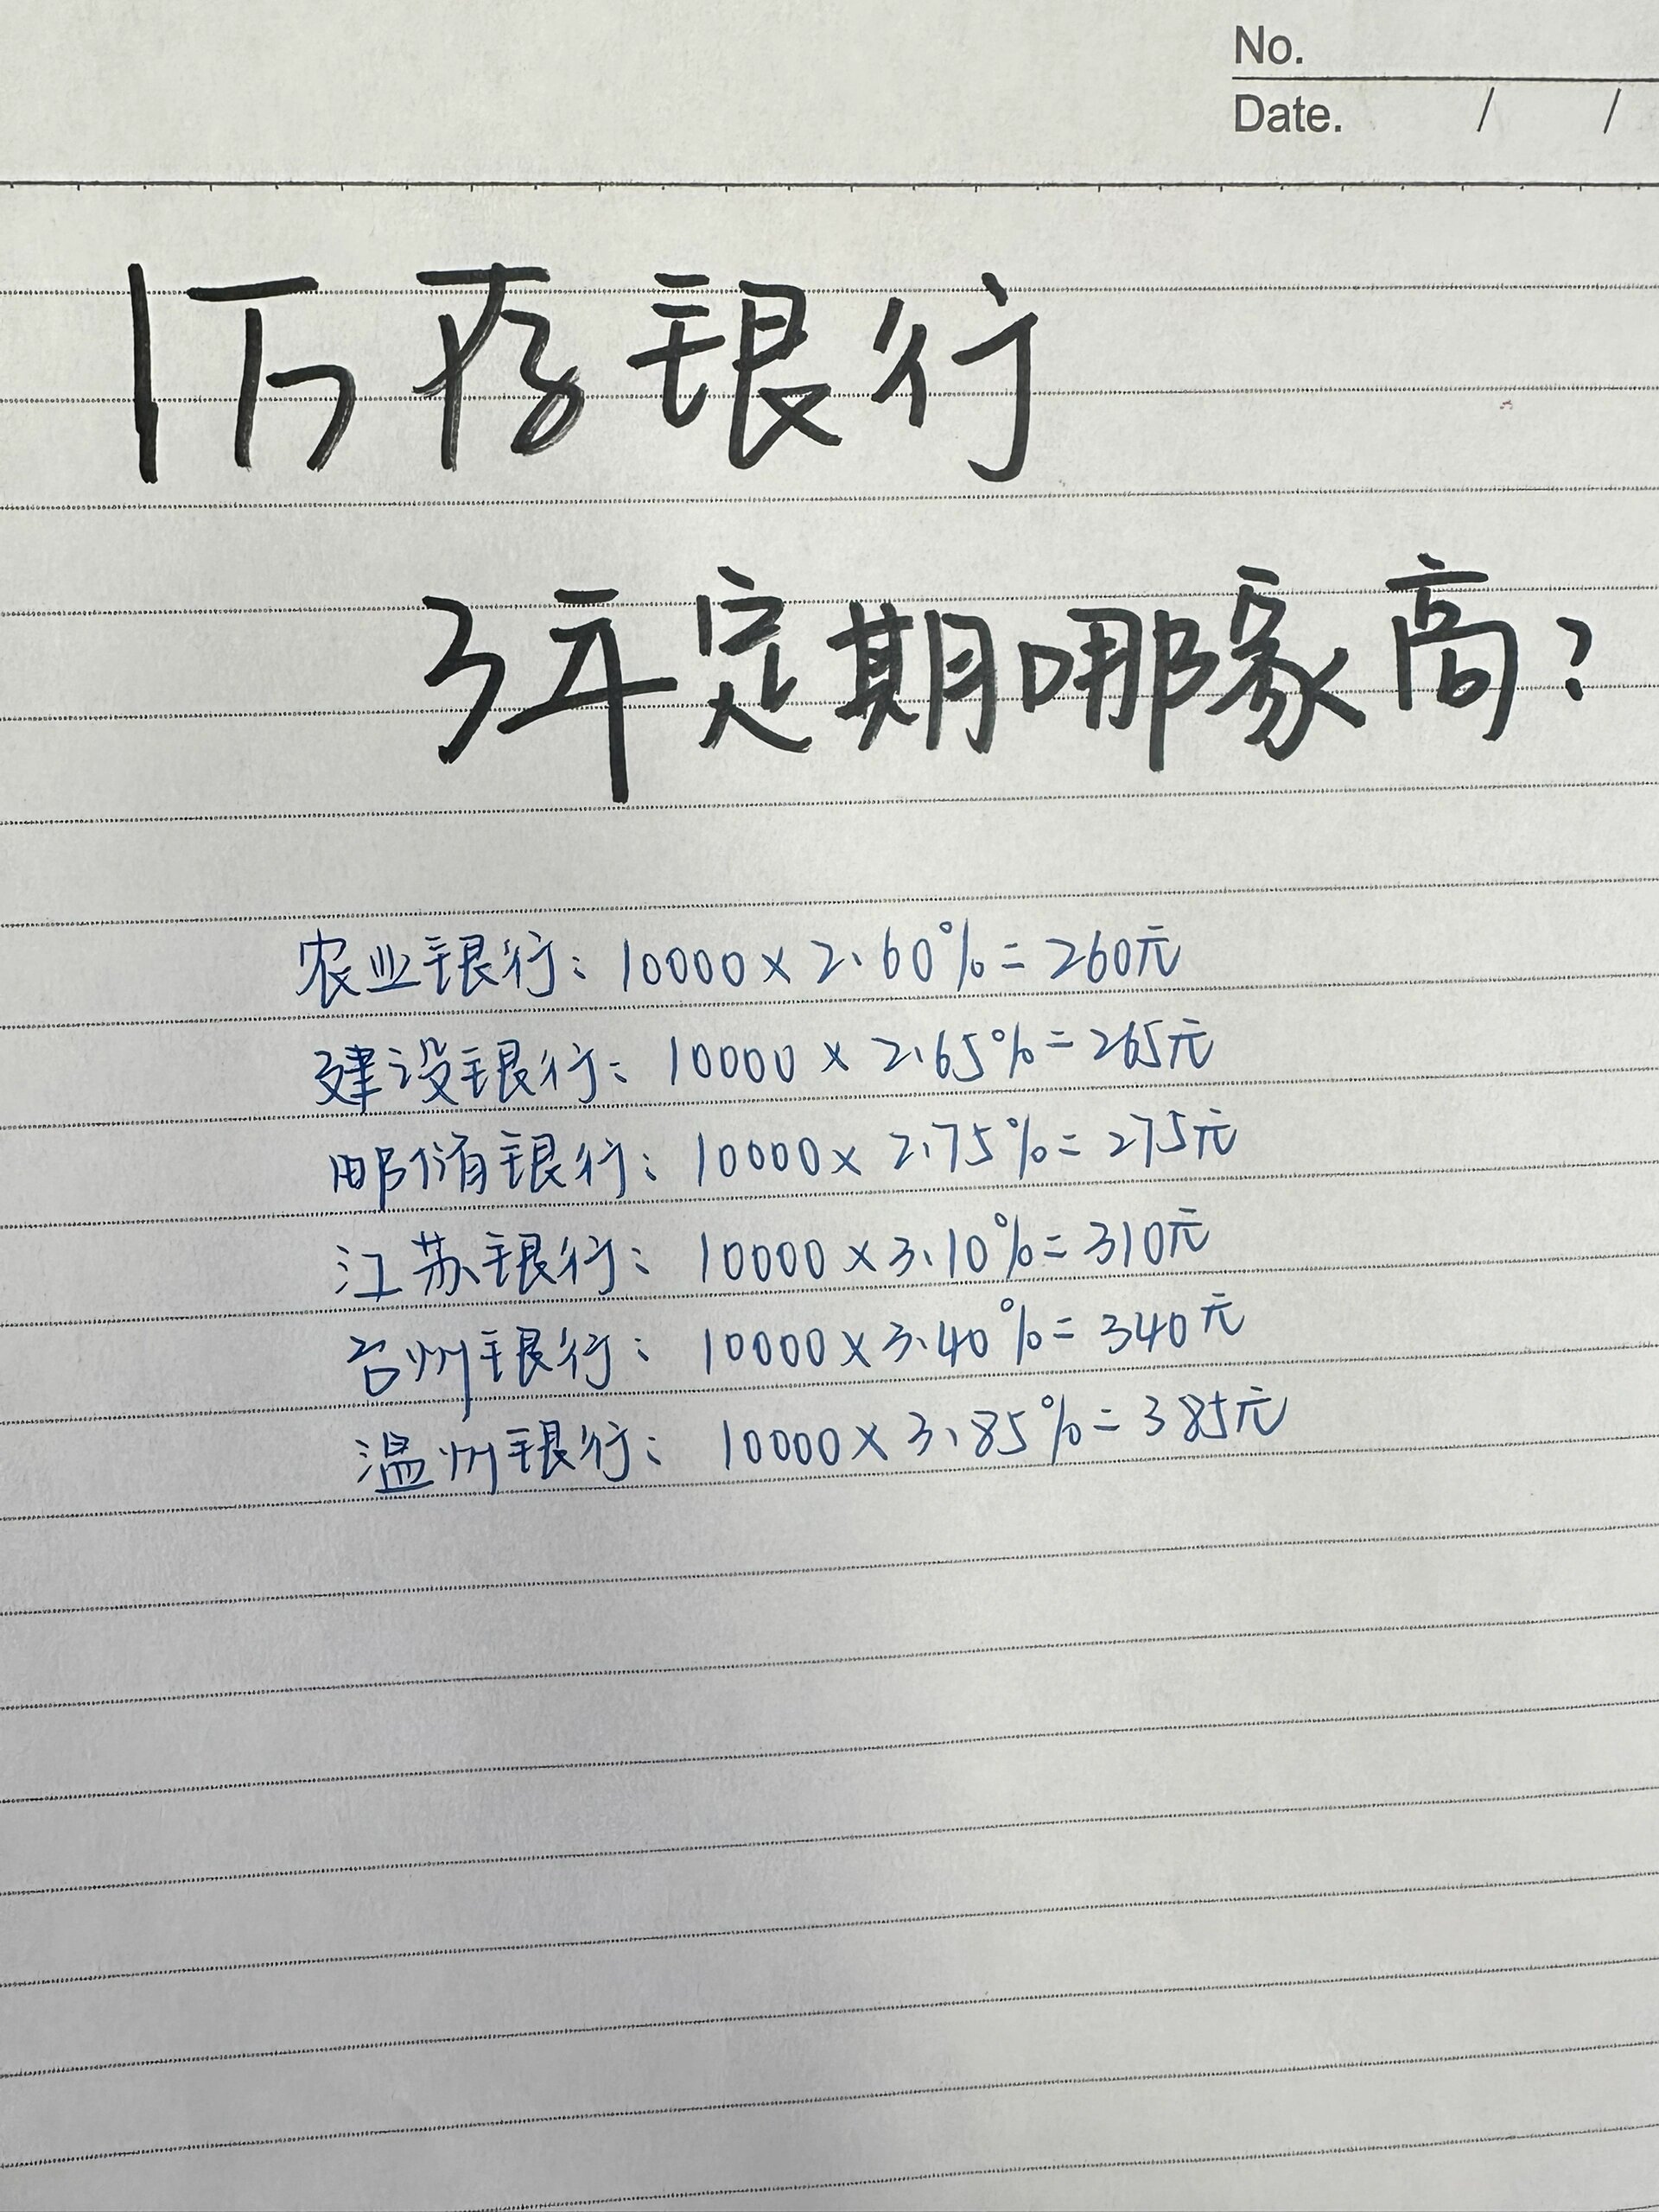 No.
Date. / /
1万存银行
3年定期哪家高?
农业银行: 10000×2.60%=260元
建设银行: 10000×2.65%=265元
邮储银行: 10000×2.75%=275元
江苏银行: 10000×3.10%=310元
台州银行: 10000×3.40%=340元
温州银行: 10000×3.85%=385元